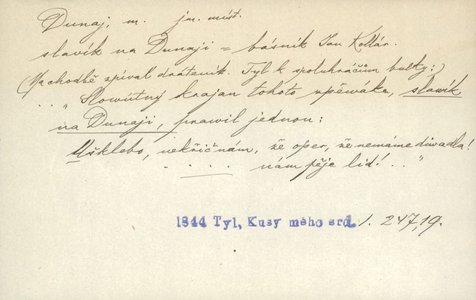 Dunaj, m. jm. míst.
slavík na Dunaji = básník Jan Kollár.
(Na chodbě spíval dráteník. Tyl k spoluhráčům
„Slowútný krajan tohoto zpěwáka, slawík
na Dunaji, prawil jednou:
nekřič nám, že oper, že nemáme diwadla!
..... nám pěje lid! ..."
1844 Tyl, Kusy mého srd. 1. 247,19.